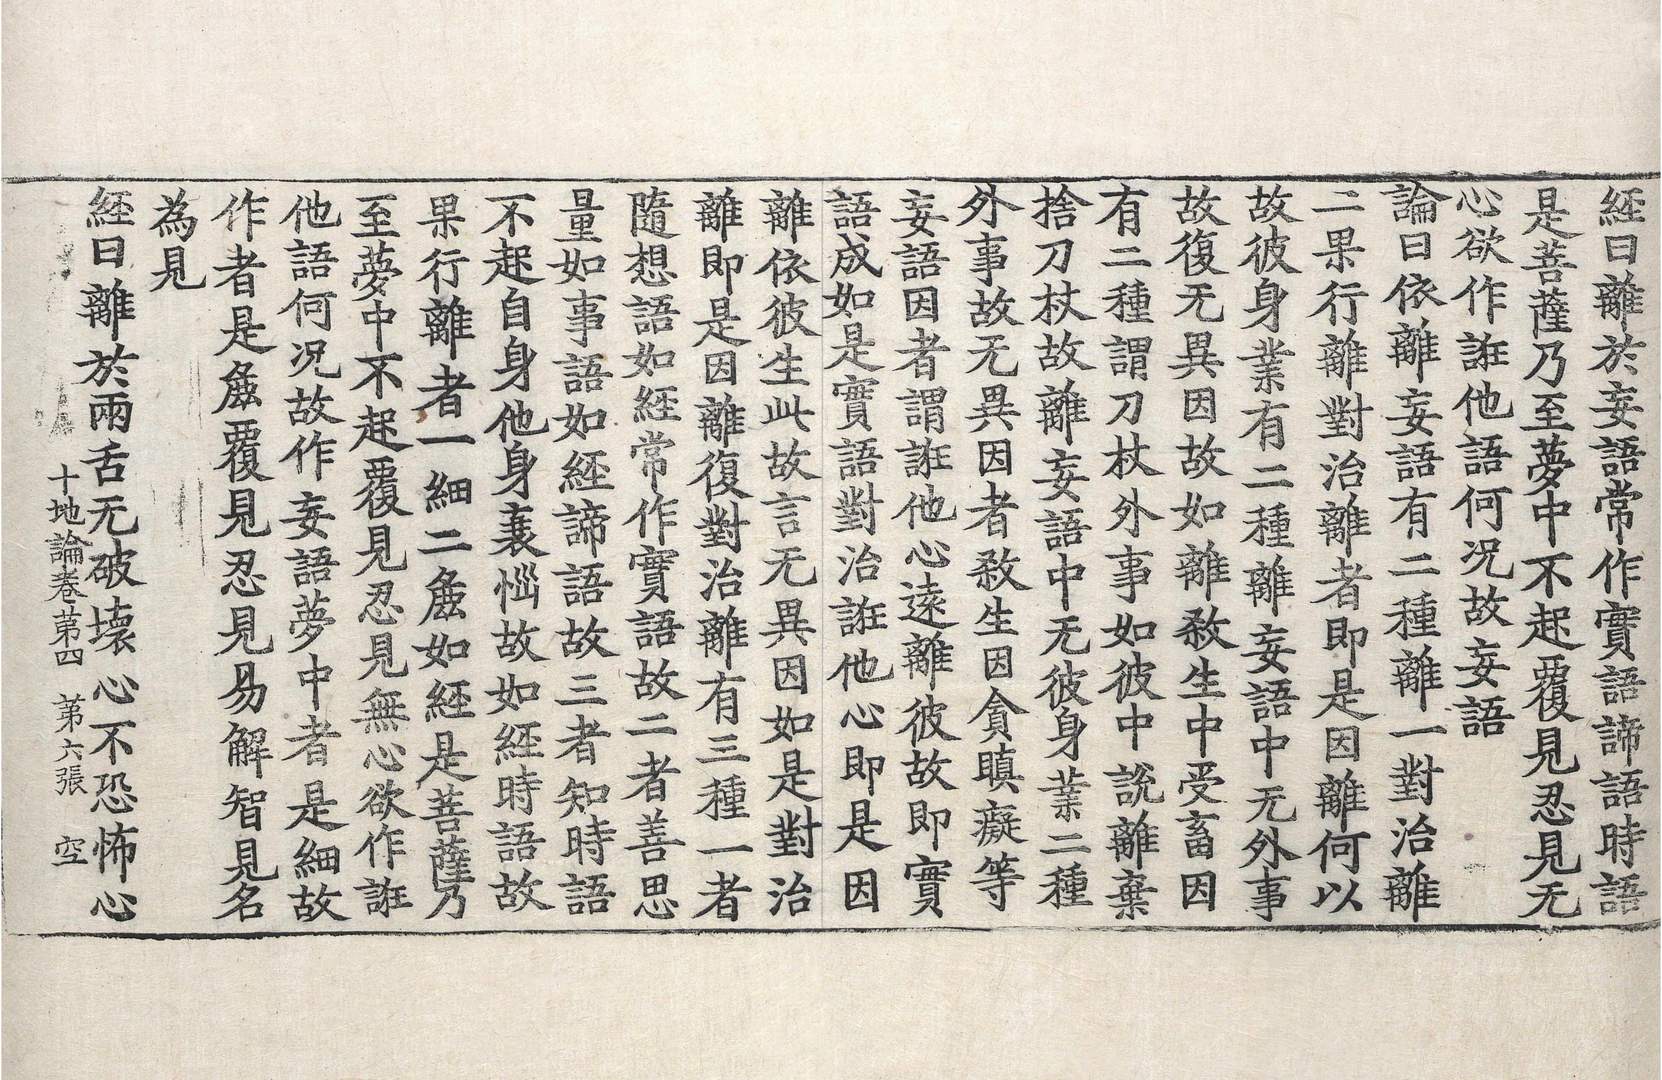 経曰離於妄語常作實語諦語時語
是菩薩乃至夢中不起覆見忍見无
心欲作誑他語何况故妄語
論曰依離妄語有二種離一對治離
二果行離對治離者即是因離何以
故彼身業有二種離妄語中无外事
故復无異因故如離殺生中受畜因
有二種謂刀杖外事如彼中說離棄
捨刀杖故離妄語中无彼身業二種
外事故无異因者殺生因貪瞋癡等
妄語因者謂誑他心遠離彼故即實
語成如是實語對治誑他心即是因
離依彼生此故言无異因如是對治
離即是因離復對治離有三種一者
隨想語如経常作實語故二者善思
量如事語如経諦語故三者知時語
不起自身他身衰惱故如経時語故
果行離者一細二麁如経是菩薩乃
至夢中不起覆見忍見無心欲作誑
他語何况故作妄語夢中者是細故
作者是麁覆見忍見易解智見名
為見
経曰離於兩舌无破壊心不恐怖心
十地論卷苐四 苐六張 空